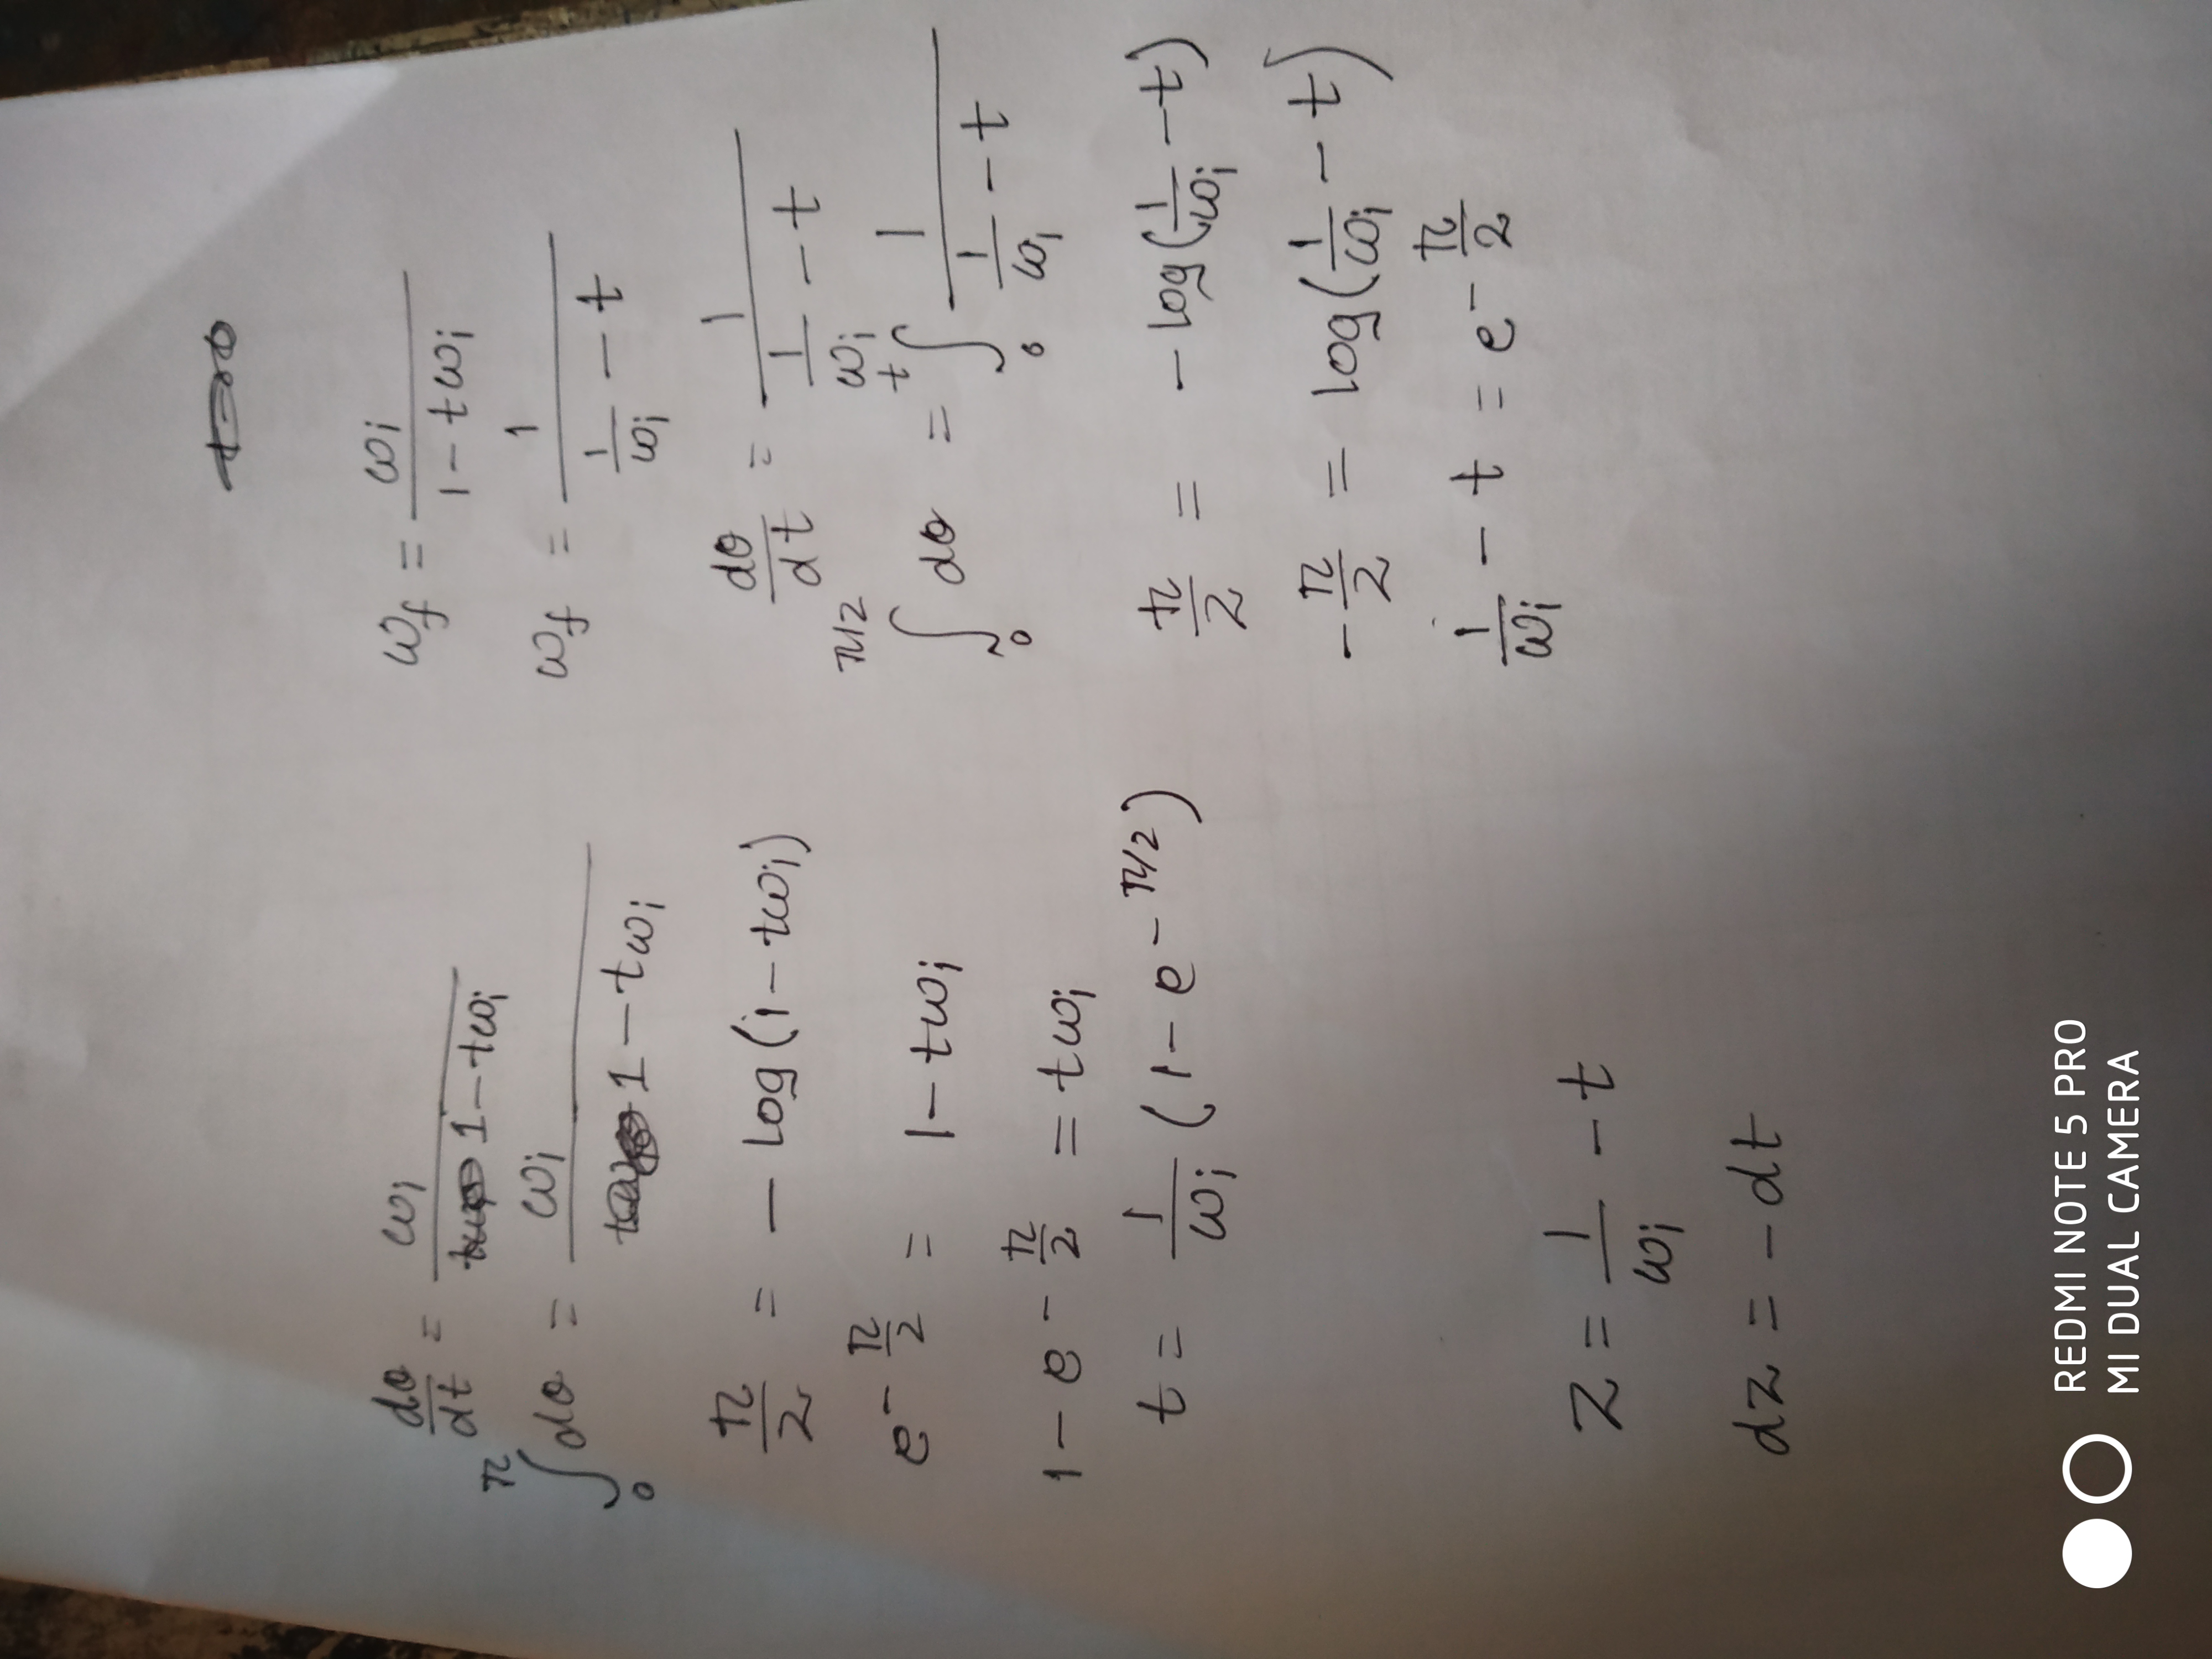 dθ/dt = ωi / (1 - tωi)
∫₀^π dθ = ωi / (1 - tωi)
π/2 = - log(1 - tωi)
e^(-π/2) = 1 - tωi
1 - e^(-π/2) = tωi
t = 1/ωi (1 - e^(-π/2))
z = 1/ωi - t
dz = -dt
ωf = ωi / (1 - tωi)
ωf = 1 / (1/ωi - t)
dθ/dt = 1 / (1/ωi - t)
∫₀^(π/2) dθ = ∫₀^t 1 / (1/ωi - t)
π/2 = - log(1/ωi - t)
-π/2 = log(1/ωi - t)
1/ωi - t = e^(-π/2)
REDMI NOTE 5 PRO
MI DUAL CAMERA